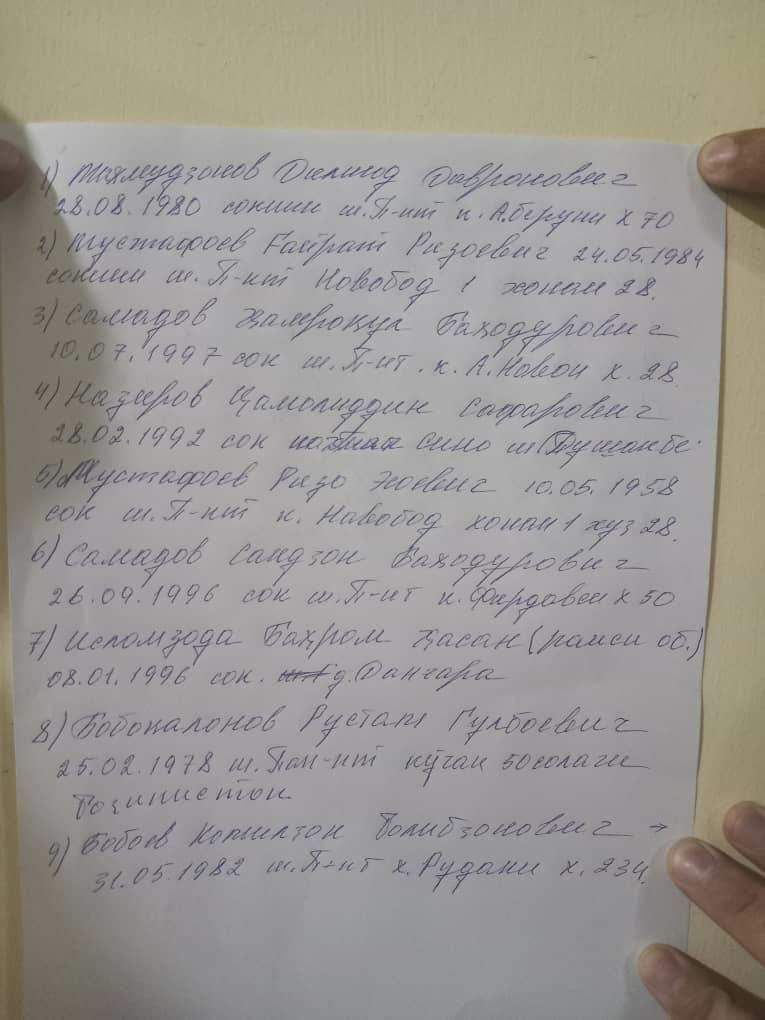 1) Миямудзонов Дилшод Давронович
28.08.1980 сокини ш.П-нт к. А.Беруни х 70
2) Мустафоев Ғайрат Ризоевич 24.05.1984
сокини ш. П-нт Новобод 1 хонаи 28.
3) Самадов Ҳамроқул Баҳодурович
10.07.1997 сок ш.П-нт. к. А.Навои х. 28
4) Назиров Ҷамолиддин Сафарович
28.02.1992 сок Сино ш Душанбе.
5) Мустафоев Ризо 10.05.1958
сок ш.П-нт к. Навобод хонаи 1 хуз 28.
6) Самадов Саидҷон Баҳодурович
26.09.1996 сок ш.П-нт к. Фирдавси х 50
7) Исломзода Баҳром Ҳасан (раиси об.)
08.01.1996 сок. д. Данғара
8) Бобокалонов Рустам Гулбоевич
25.02.1978 ш.Пан-нт кӯчаи 50 солагии
Тоҷикистон
9) Бобоев Комилҷон Толибҷонович →
31.05.1982 ш.П-нт х. Рудаки х. 234.